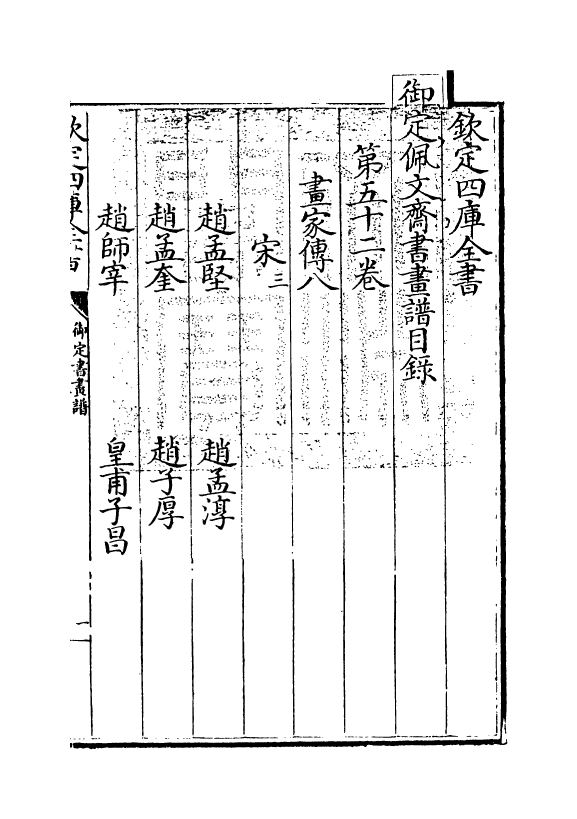 欽定四庫全書
御定佩文齋書畫譜目錄
第五十二卷
畫家傳八
宋三
趙孟堅 趙孟淳
趙孟奎 趙子厚
趙師宰 皇甫子昌
欽定四庫全書
御定書畫譜
一